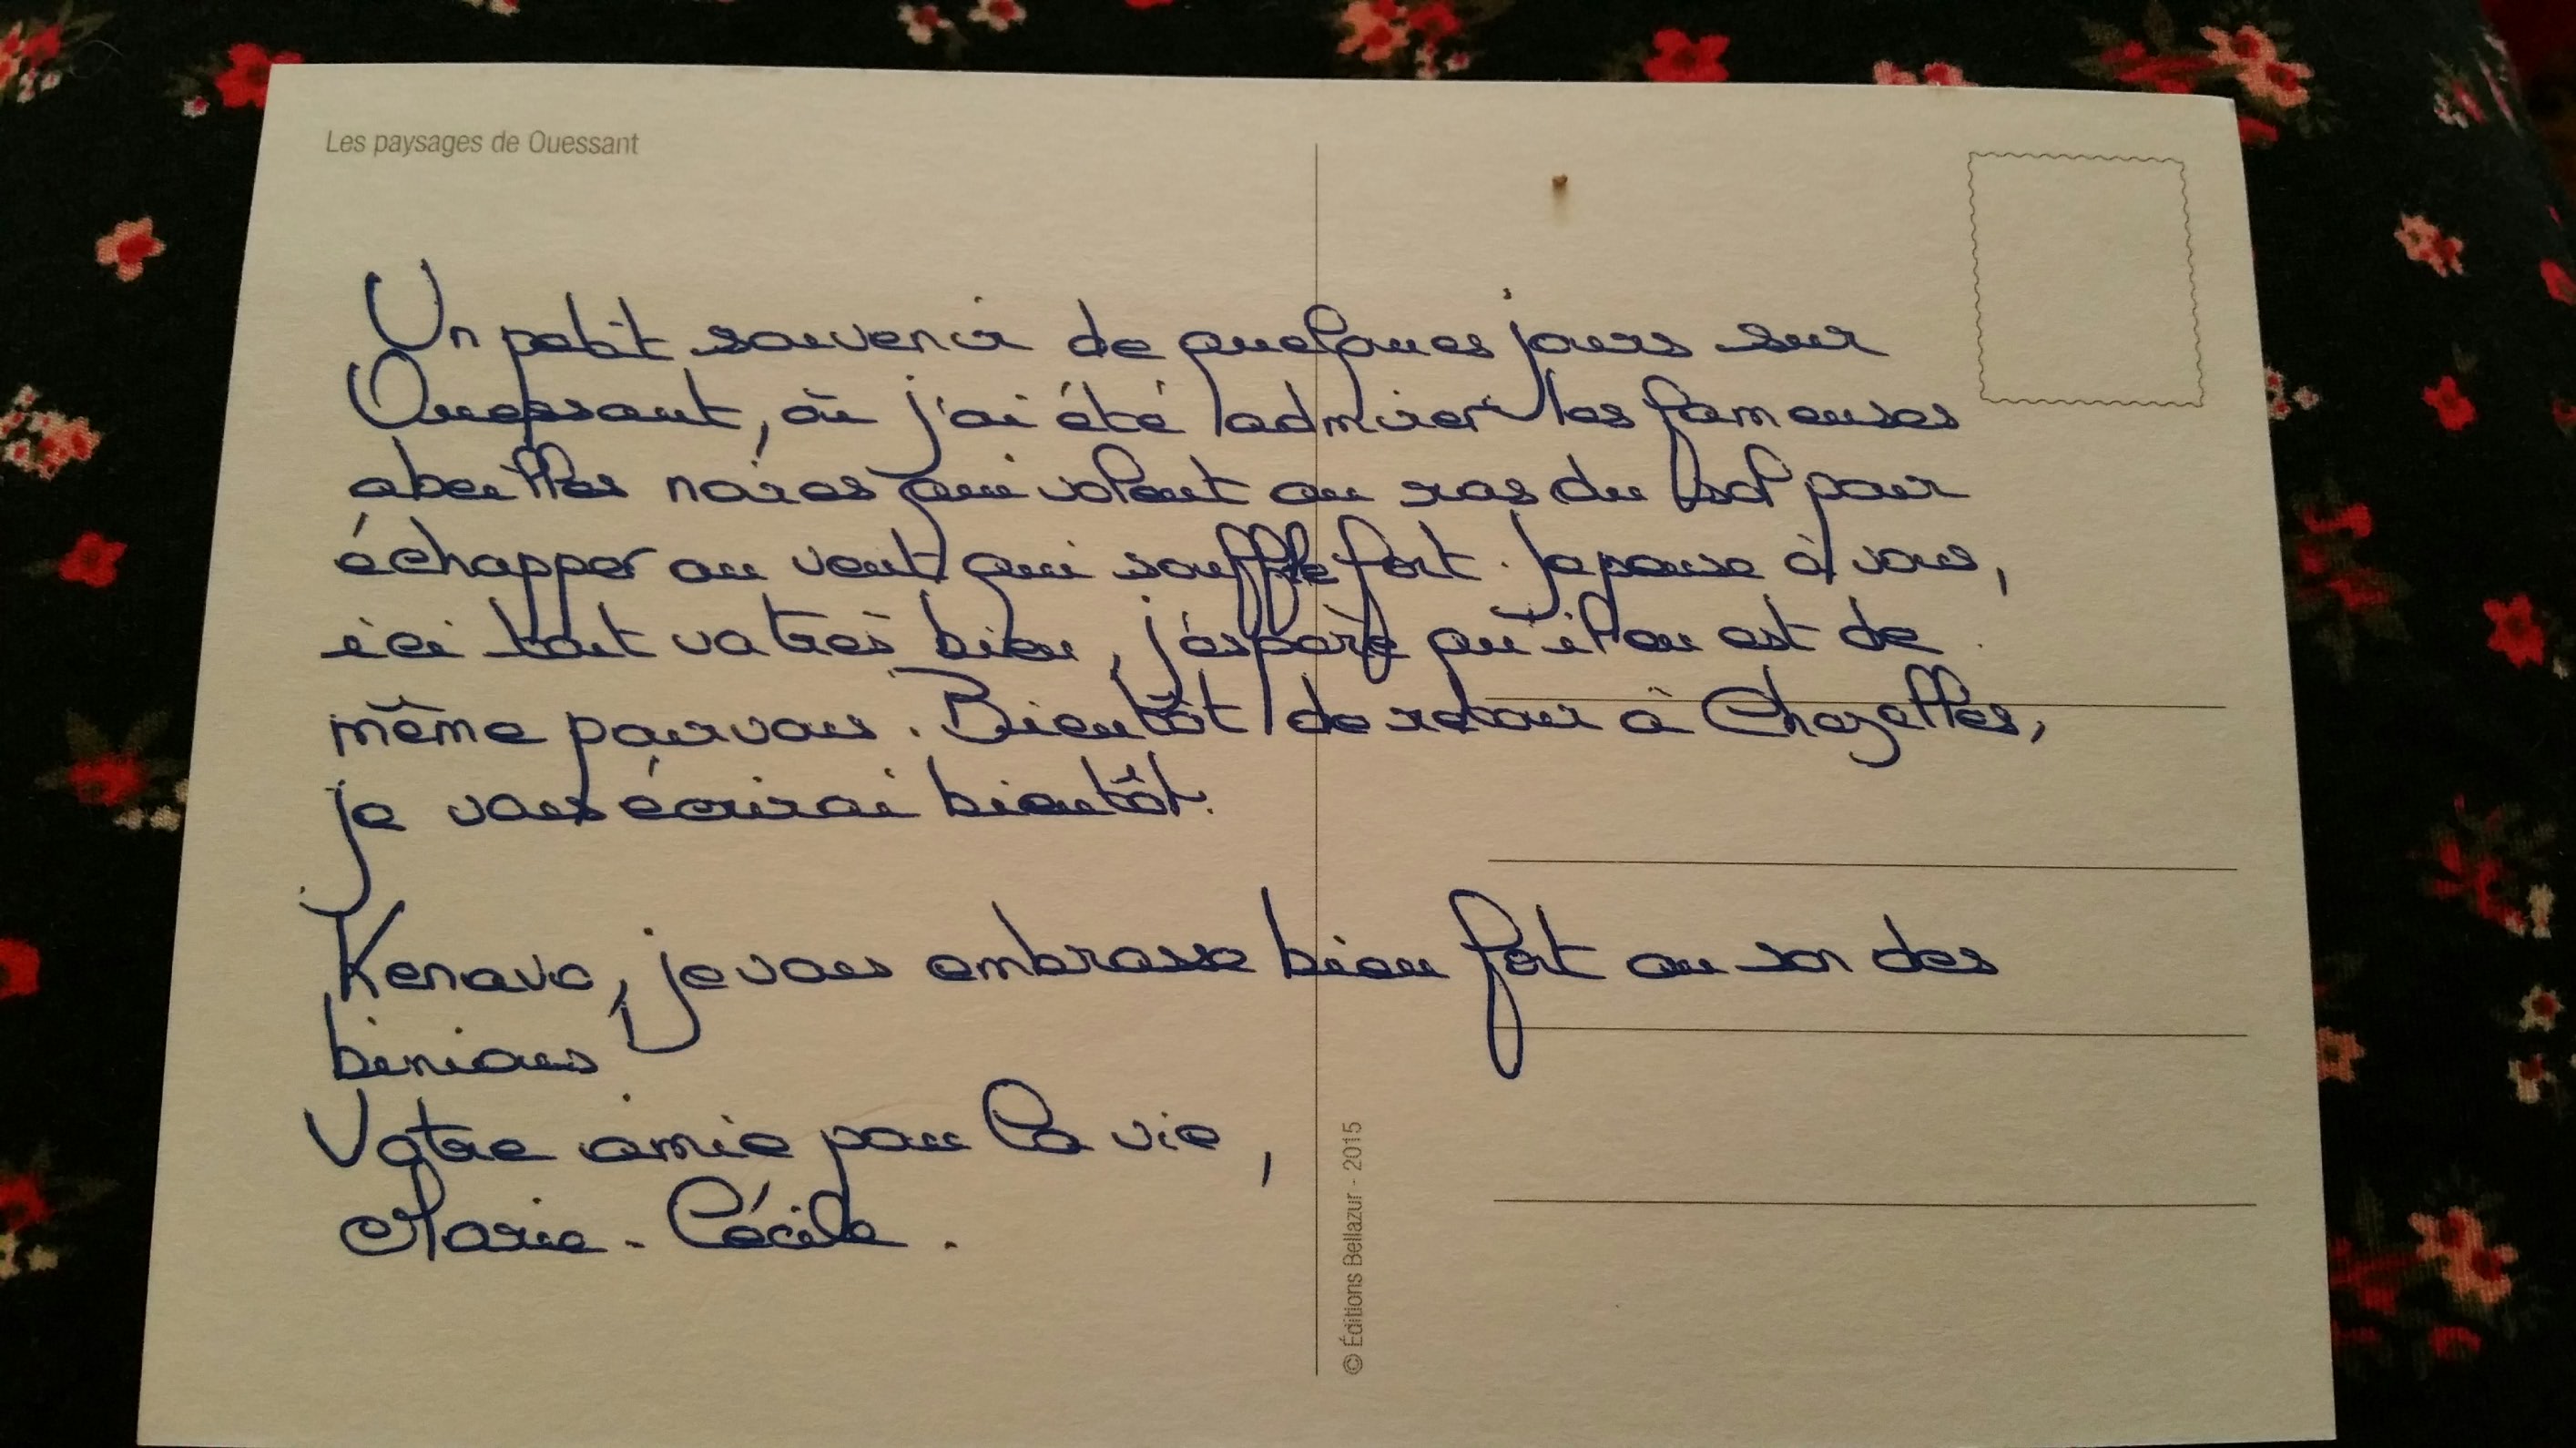 Les paysages de Ouessant
Un petit souvenir de quelques jours sur
Ouessant, où j'ai été admirer les fameuses
abeilles noires qui volent au ras du sol pour
échapper au vent qui souffle fort. Je pense à vous,
ici tout va très bien, j'espère qu'il en est de
même pour vous. Bientôt de retour à Chazelles,
je vous écrirai bientôt.
Kenavo, je vous embrasse bien fort au son des
binious.
Votre amie pour la vie,
Marie-Cécile.
© Éditions Bellazur - 2015